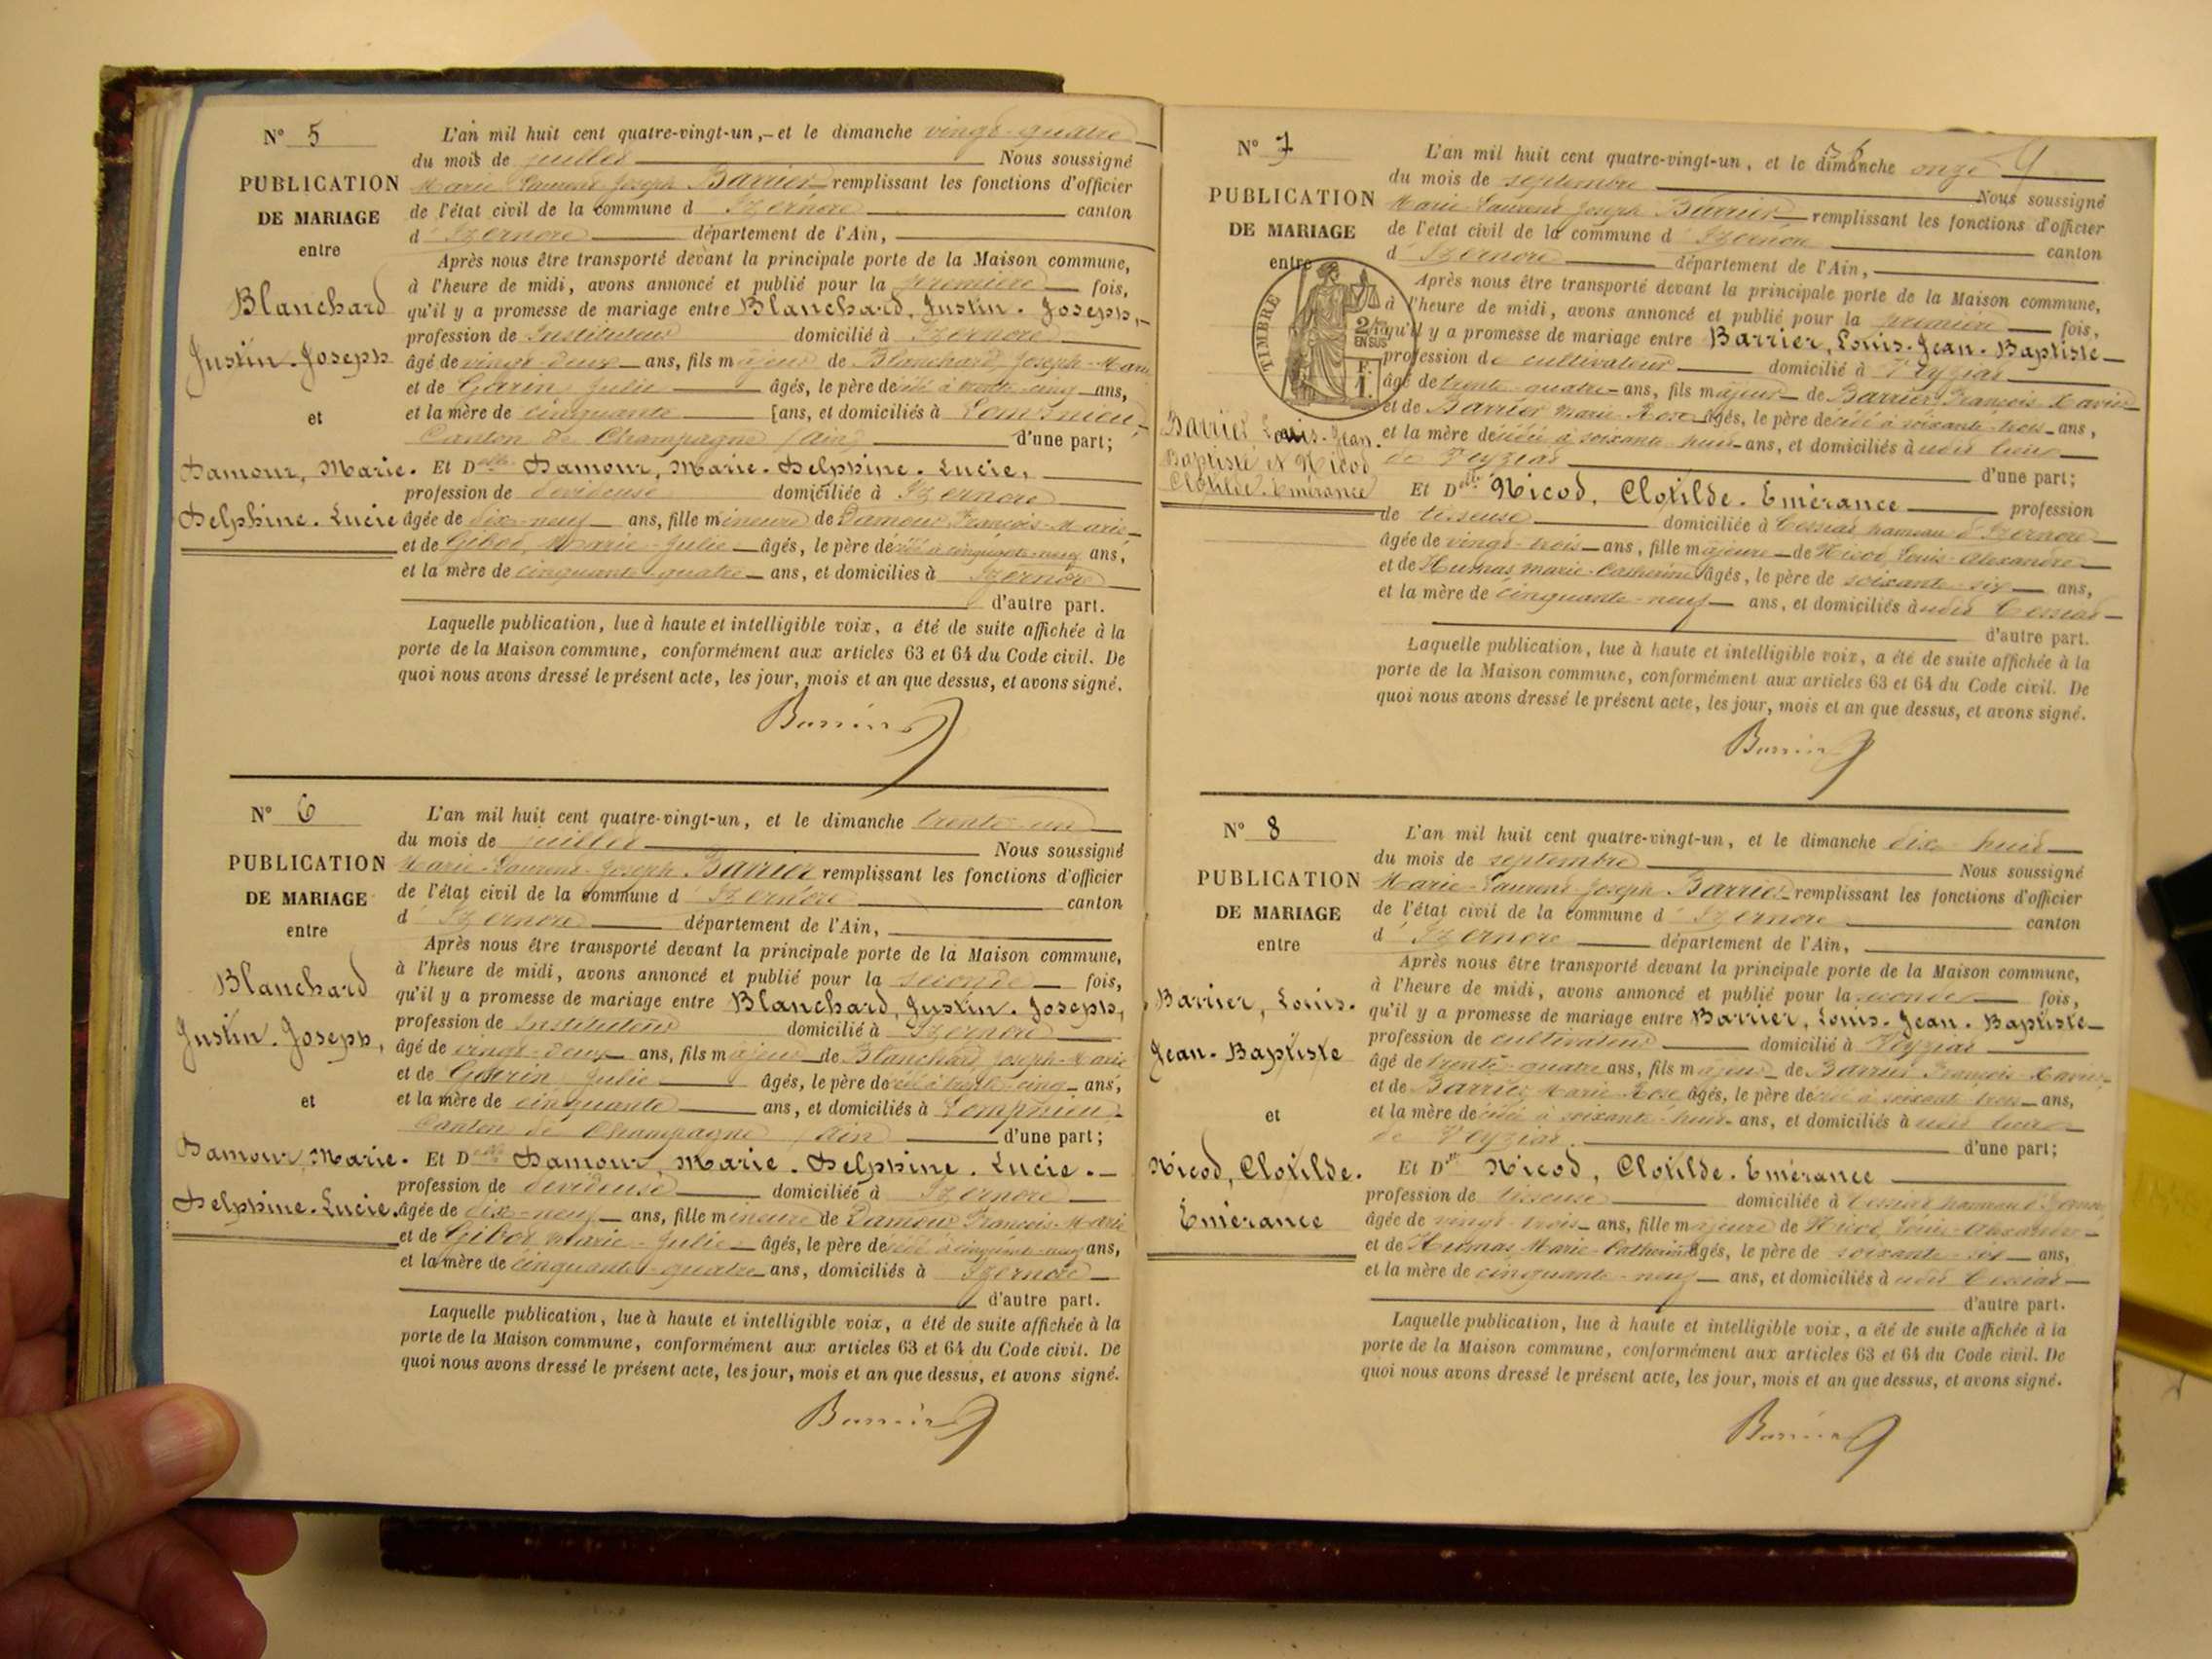 N° 5
PUBLICATION
DE MARIAGE
entre
Blanchard
Justin-Joseph
et
Damour, Marie.
Delphine. Lucie
L'an mil huit cent quatre-vingt-un, et le dimanche vingt-quatre
du mois de juillet Nous soussigné
Marie Laurent Joseph Barrier remplissant les fonctions d'officier
de l'état civil de la commune d'Izernore canton
d'Izernore département de l'Ain,
Après nous être transporté devant la principale porte de la Maison commune,
à l'heure de midi, avons annoncé et publié pour la première fois,
qu'il y a promesse de mariage entre Blanchard, Justin. Joseph,
profession de Instituteur domicilié à Izernore
âgé de vingt-deux ans, fils majeur de Blanchard, Joseph-Marie
et de Gorin Julie âgés, le père décédé à trente-cinq ans,
et la mère de cinquante [ans, et domiciliés à Lompnieu,
Canton de Champagne (Ain) d'une part;
Et Delle Damour, Marie. Delphine. Lucie,
profession de dévideuse domiciliée à Izernore
âgée de dix-neuf ans, fille mineure de Damour François-Marie
et de Gibot, Marie-Julie âgés, le père décédé à cinquante-neuf ans,
et la mère de cinquante-quatre ans, et domiciliés à Izernore
d'autre part.
Laquelle publication, lue à haute et intelligible voix, a été de suite affichée à la
porte de la Maison commune, conformément aux articles 63 et 64 du Code civil. De
quoi nous avons dressé le présent acte, les jour, mois et an que dessus, et avons signé.
Barrier
N° 6
PUBLICATION
DE MARIAGE
entre
Blanchard
Justin. Joseph,
et
Damour, Marie.
Delphine. Lucie.
L'an mil huit cent quatre-vingt-un, et le dimanche trente-un
du mois de juillet Nous soussigné
Marie-Laurent-Joseph Barrier remplissant les fonctions d'officier
de l'état civil de la commune d'Izernore canton
d'Izernore département de l'Ain,
Après nous être transporté devant la principale porte de la Maison commune,
à l'heure de midi, avons annoncé et publié pour la seconde fois,
qu'il y a promesse de mariage entre Blanchard, Justin. Joseph,
profession de Instituteur domicilié à Izernore
âgé de vingt-deux ans, fils majeur de Blanchard Joseph-Marie
et de Julie âgés, le père décédé à trente-cinq ans,
et la mère de cinquante ans, et domiciliés à Lompnieu,
Canton de Champagne (Ain) d'une part;
Et Delle Damour, Marie. Delphine. Lucie.
profession de dévideuse domiciliée à Izernore
âgée de dix-neuf ans, fille mineure de Damour François-Marie
et de Gibot Marie-Julie âgés, le père décédé à cinquante-neuf ans,
et la mère de cinquante-quatre ans, domiciliés à Izernore
d'autre part.
Laquelle publication, lue à haute et intelligible voix, a été de suite affichée à la
porte de la Maison commune, conformément aux articles 63 et 64 du Code civil. De
quoi nous avons dressé le présent acte, les jour, mois et an que dessus, et avons signé.
Barrier
N° 7
PUBLICATION
DE MARIAGE
entre
TIMBRE
2/10
EN SUS
F.
1.
Barrier Louis-Jean.
Baptiste et Nicod
Clotilde. Emérance
L'an mil huit cent quatre-vingt-un, et le dimanche onze
du mois de septembre Nous soussigné
Marie Laurent Joseph Barrier remplissant les fonctions d'officier
de l'état civil de la commune d'Izernore canton
d'Izernore département de l'Ain,
Après nous être transporté devant la principale porte de la Maison commune,
à l'heure de midi, avons annoncé et publié pour la première fois,
qu'il y a promesse de mariage entre Barrier, Louis-Jean-Baptiste
profession de cultivateur domicilié à Veyziat
âgé de trente-quatre ans, fils majeur de Barrier François Xavier
et de Barrier Marie Rose âgés, le père décédé à soixante-trois ans,
et la mère décédée à soixante-huit ans, et domiciliés à udit lieu
de Veyziat d'une part;
Et Delle Nicod, Clotilde. Emérance profession
de tisseuse domiciliée à Cessiat hameau d'Izernore
âgée de vingt-trois ans, fille majeure de Nicod, Louis-Alexandre
et de Humas Marie-Catherine âgés, le père de soixante-six ans,
et la mère de cinquante-neuf ans, et domiciliés à udit Cessiat
d'autre part.
Laquelle publication, lue à haute et intelligible voix, a été de suite affichée à la
porte de la Maison commune, conformément aux articles 63 et 64 du Code civil. De
quoi nous avons dressé le présent acte, les jour, mois et an que dessus, et avons signé.
Barrier
N° 8
PUBLICATION
DE MARIAGE
entre
Barrier, Louis.
Jean-Baptiste
et
Nicod, Clotilde.
Emérance
L'an mil huit cent quatre-vingt-un, et le dimanche dix-huit
du mois de septembre Nous soussigné
Marie-Laurent-Joseph Barrier remplissant les fonctions d'officier
de l'état civil de la commune d'Izernore canton
d'Izernore département de l'Ain,
Après nous être transporté devant la principale porte de la Maison commune,
à l'heure de midi, avons annoncé et publié pour la seconde fois,
qu'il y a promesse de mariage entre Barrier, Louis-Jean-Baptiste
profession de cultivateur domicilié à Veyziat
âgé de trente-quatre ans, fils majeur de Barrier François-Xavier
et de Barrier, Marie-Rose âgés, le père décédé à soixante-trois ans,
et la mère décédée à soixante-huit ans, et domiciliés à udit lieu
de Veyziat. d'une part;
Et Dlle Nicod, Clotilde. Emérance
profession de tisseuse domiciliée à Cessiat hameau d'Izernore
âgée de vingt-trois ans, fille majeure de Nicod, Louis-Alexandre
et de Humas Marie-Catherine âgés, le père de soixante-six ans,
et la mère de cinquante-neuf ans, et domiciliés à udit Cessiat
d'autre part.
Laquelle publication, lue à haute et intelligible voix, a été de suite affichée à la
porte de la Maison commune, conformément aux articles 63 et 64 du Code civil. De
quoi nous avons dressé le présent acte, les jour, mois et an que dessus, et avons signé.
Barrier